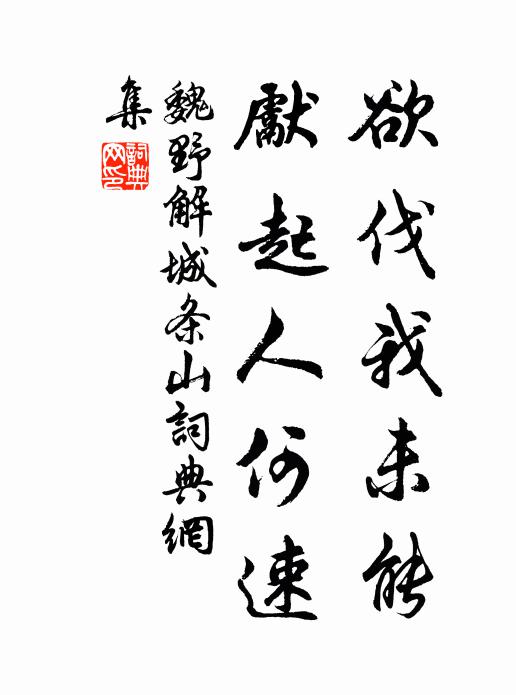 欲伐我未能
獻起人何速
魏野解城条山詞典網
集
詞典網印